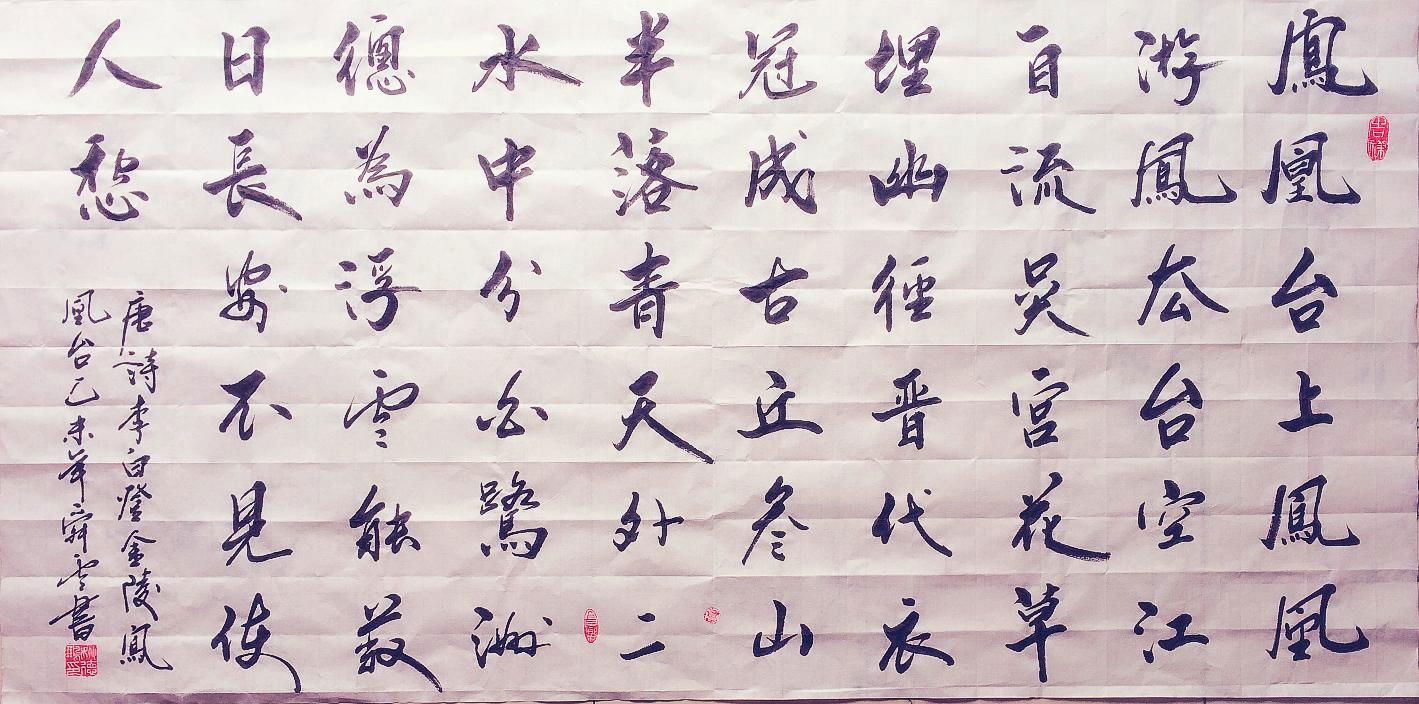 鳳凰台上鳳凰
游鳳去台空江
自流吴宫花草
埋幽徑晋代衣
冠成古丘叁山
半落青天外二
水中分白鷺洲
總為浮雲能蔽
日長安不見使
人愁
唐詩李白燈金陵鳳
凰台乙未年舜雲書